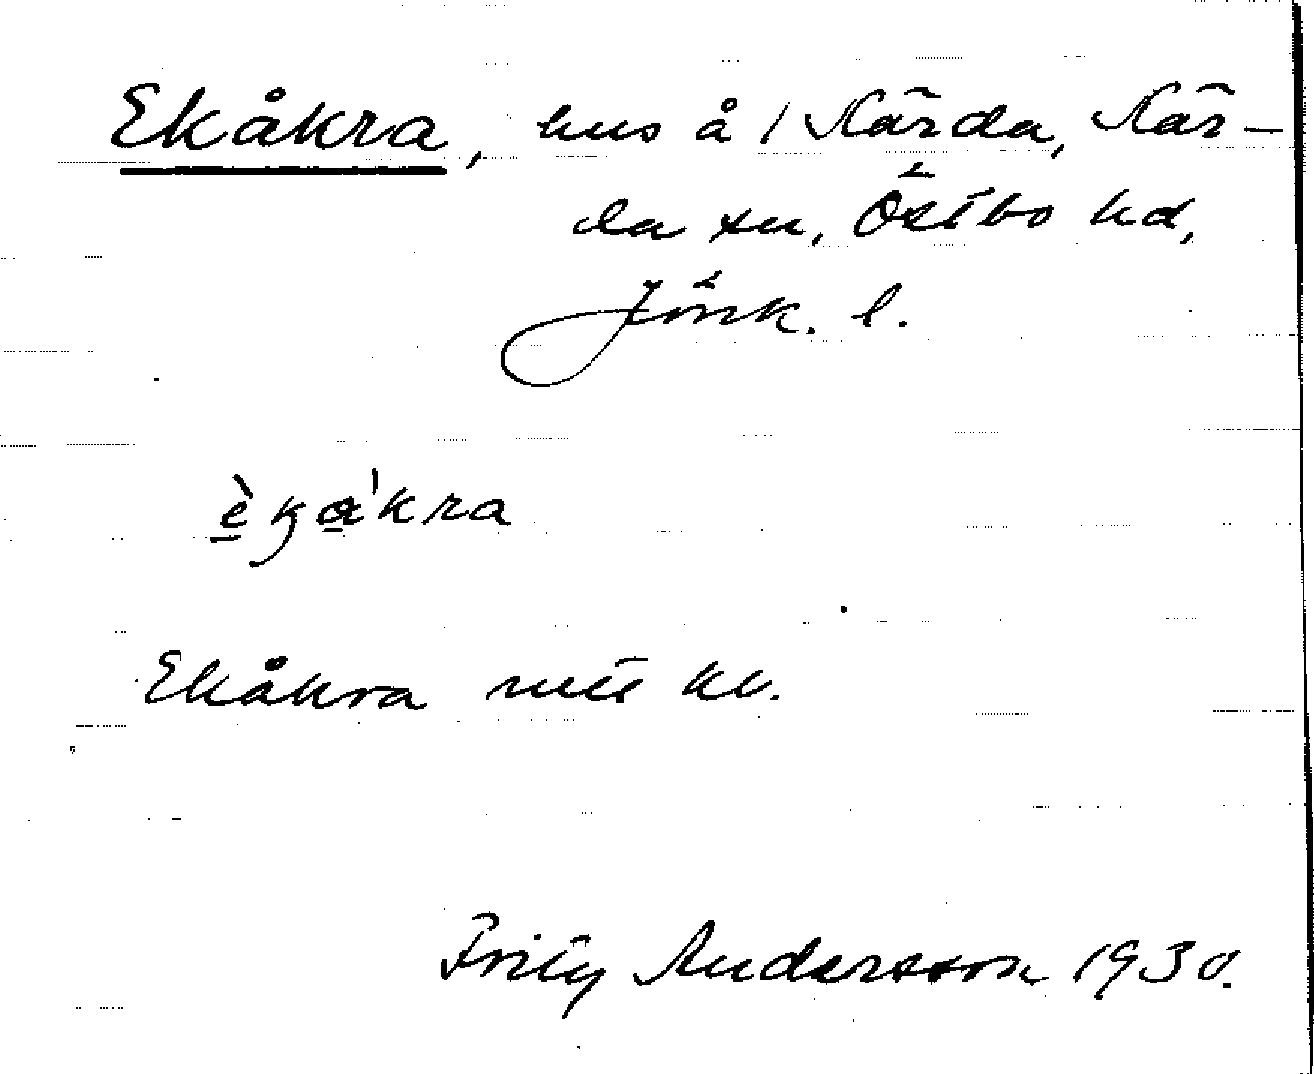 Ekåkra, hus å 1 Kärda, Kär-
da sn, Östbo hd,
Jönk. l.
èkɑ̀'kra
Ekåkra
Fritz Andersson 1930.